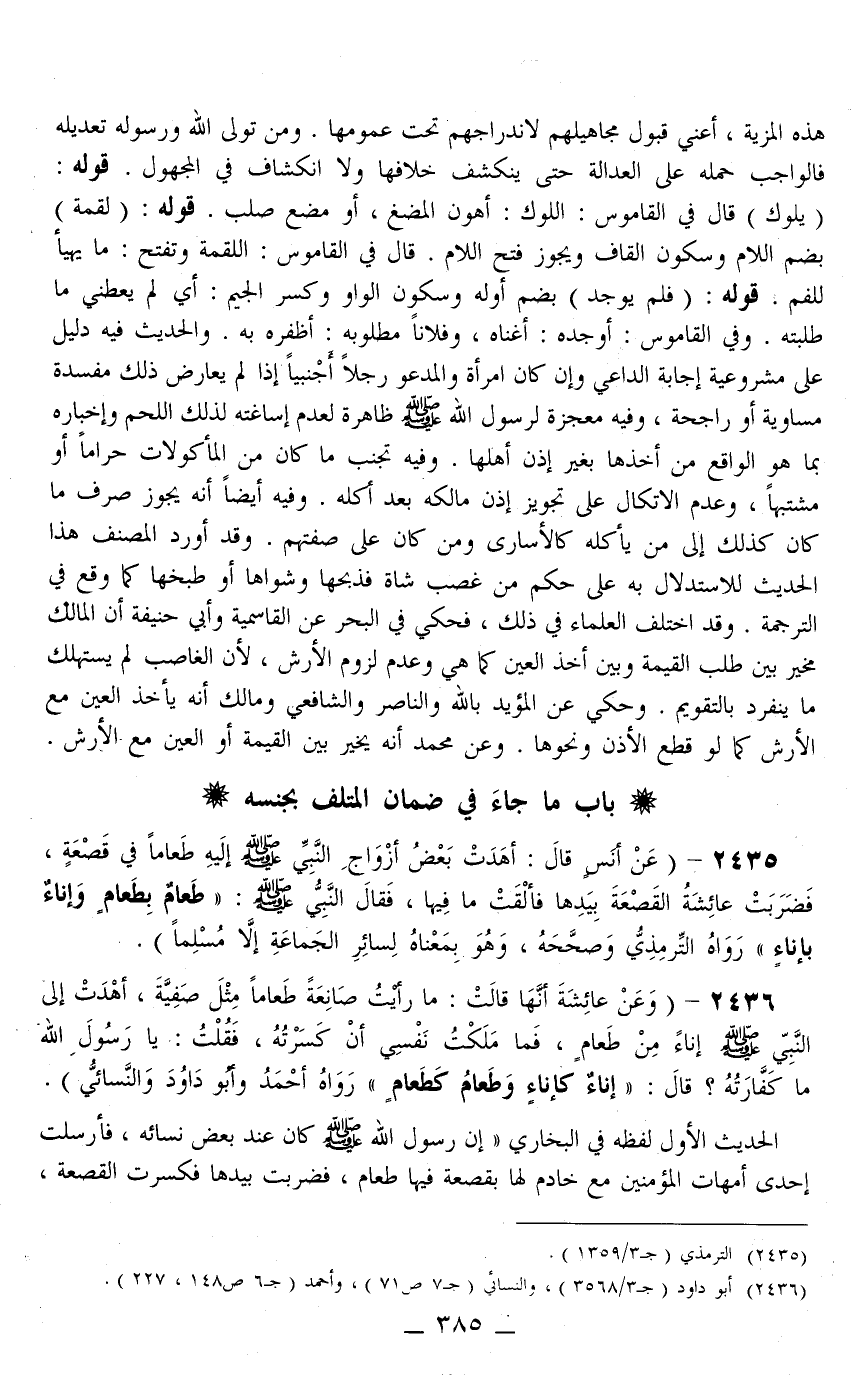 هذه المزية ، أعني قبول مجاهيلهم لاندراجهم تحت عمومها . ومن تولى الله ورسوله تعديله
فالواجب حمله على العدالة حتى ينكشف خلافها ولا انكشاف في المجهول . قوله :
( يلوك ) قال في القاموس : اللوك : أهون المضغ ، أو مضع صلب . قوله : ( لقمة )
بضم اللام وسكون القاف ويجوز فتح اللام . قال في القاموس : اللقمة وتفتح : ما يهيأ
للفم . قوله : ( فلم يوجد ) بضم أوله وسكون الواو وكسر الجيم : أي لم يعطني ما
طلبته . وفي القاموس : أوجده : أغناه ، وفلاناً مطلوبه : أظفره به . والحديث فيه دليل
على مشروعية إجابة الداعي وإن كان امرأة والمدعو رجلاً أَجْنبياً إذا لم يعارض ذلك مفسدة
مساوية أو راجحة ، وفيه معجزة لرسول الله ﷺ ظاهرة لعدم إساغته لذلك اللحم وإخباره
بما هو الواقع من أخذها بغير إذن أهلها . وفيه تجنب ما كان من المأكولات حراماً أو
مشتبهاً ، وعدم الاتكال على تجويز إذن مالكه بعد أكله . وفيه أيضاً أنه يجوز صرف ما
كان كذلك إلى من يأكله كالأسارى ومن كان على صفتهم . وقد أورد المصنف هذا
الحديث للاستدلال به على حكم من غصب شاة فذبحها وشواها أو طبخها كما وقع في
الترجمة . وقد اختلف العلماء في ذلك ، فحكي في البحر عن القاسمية وأبي حنيفة أن المالك
مخير بين طلب القيمة وبين أخذ العين كما هي وعدم لزوم الأرش ، لأن الغاصب لم يستهلك
ما ينفرد بالتقويم . وحكي عن المؤيد بالله والناصر والشافعي ومالك أنه يأخذ العين مع
الأرش كما لو قطع الأذن ونحوها . وعن محمد أنه يخير بين القيمة أو العين مع الأرش .
✵ باب ما جاءَ في ضمان المتلف بجنسه ✵
٢٤٣٥ – ( عَنْ أنَسٍ قالَ : أهَدَتْ بَعْضُ أزْوَاجِ النَّبِيِّ ﷺ إلَيهِ طَعاماً في قَصْعَةٍ ،
فَضَرَبَتْ عائِشَةُ القَصْعَةَ بِيَدِها فألْقَتْ ما فِيها ، فَقالَ النَّبِيُّ ﷺ : « طَعامٌ بِطَعامٍ وَإناءٌ
بإناءٍ » رَوَاهُ التِّرمِذِيُّ وَصحَّحَهُ ، وَهُوَ بِمَعْناهُ لِسائِرِ الجَماعَةِ إلَّا مُسْلِماً ) .
٢٤٣٦ – ( وَعَنْ عائِشَةَ أنَّهَا قالَتْ : ما رأيْتُ صَانِعَةً طَعاماً مِثْلَ صَفِيَّةَ ، أهْدَتْ إلى
النَّبِيّ ﷺ إناءً مِنْ طَعامٍ ، فَما مَلَكْتُ نَفْسِي أنْ كَسَرْتُهُ ، فَقُلْتُ : يا رَسُولَ اللهِ
ما كَفَّارَتُهُ ؟ قالَ : « إناءٌ كإناءٍ وَطَعامُ كَطَعامٍ » رَوَاهُ أحْمَدُ وأبُو دَاوُدَ وَالنَّسائيُّ ) .
الحديث الأول لفظه في البخاري « إن رسول الله ﷺ كان عند بعض نسائه ، فأرسلت
إحدى أمهات المؤمنين مع خادم لها بقصعة فيها طعام ، فضربت بيدها فكسرت القصعة ،
(٢٤٣٥) الترمذي ( جـ٣/١٣٥٩ ) .
(٢٤٣٦) أبو داود ( جـ٣/٣٥٦٨ ) ، والنسائي ( جـ٧ ص٧١ ) ، وأحمد ( جـ٦ ص١٤٨ ، ٢٢٧ ) .
_ ٣٨٥ _